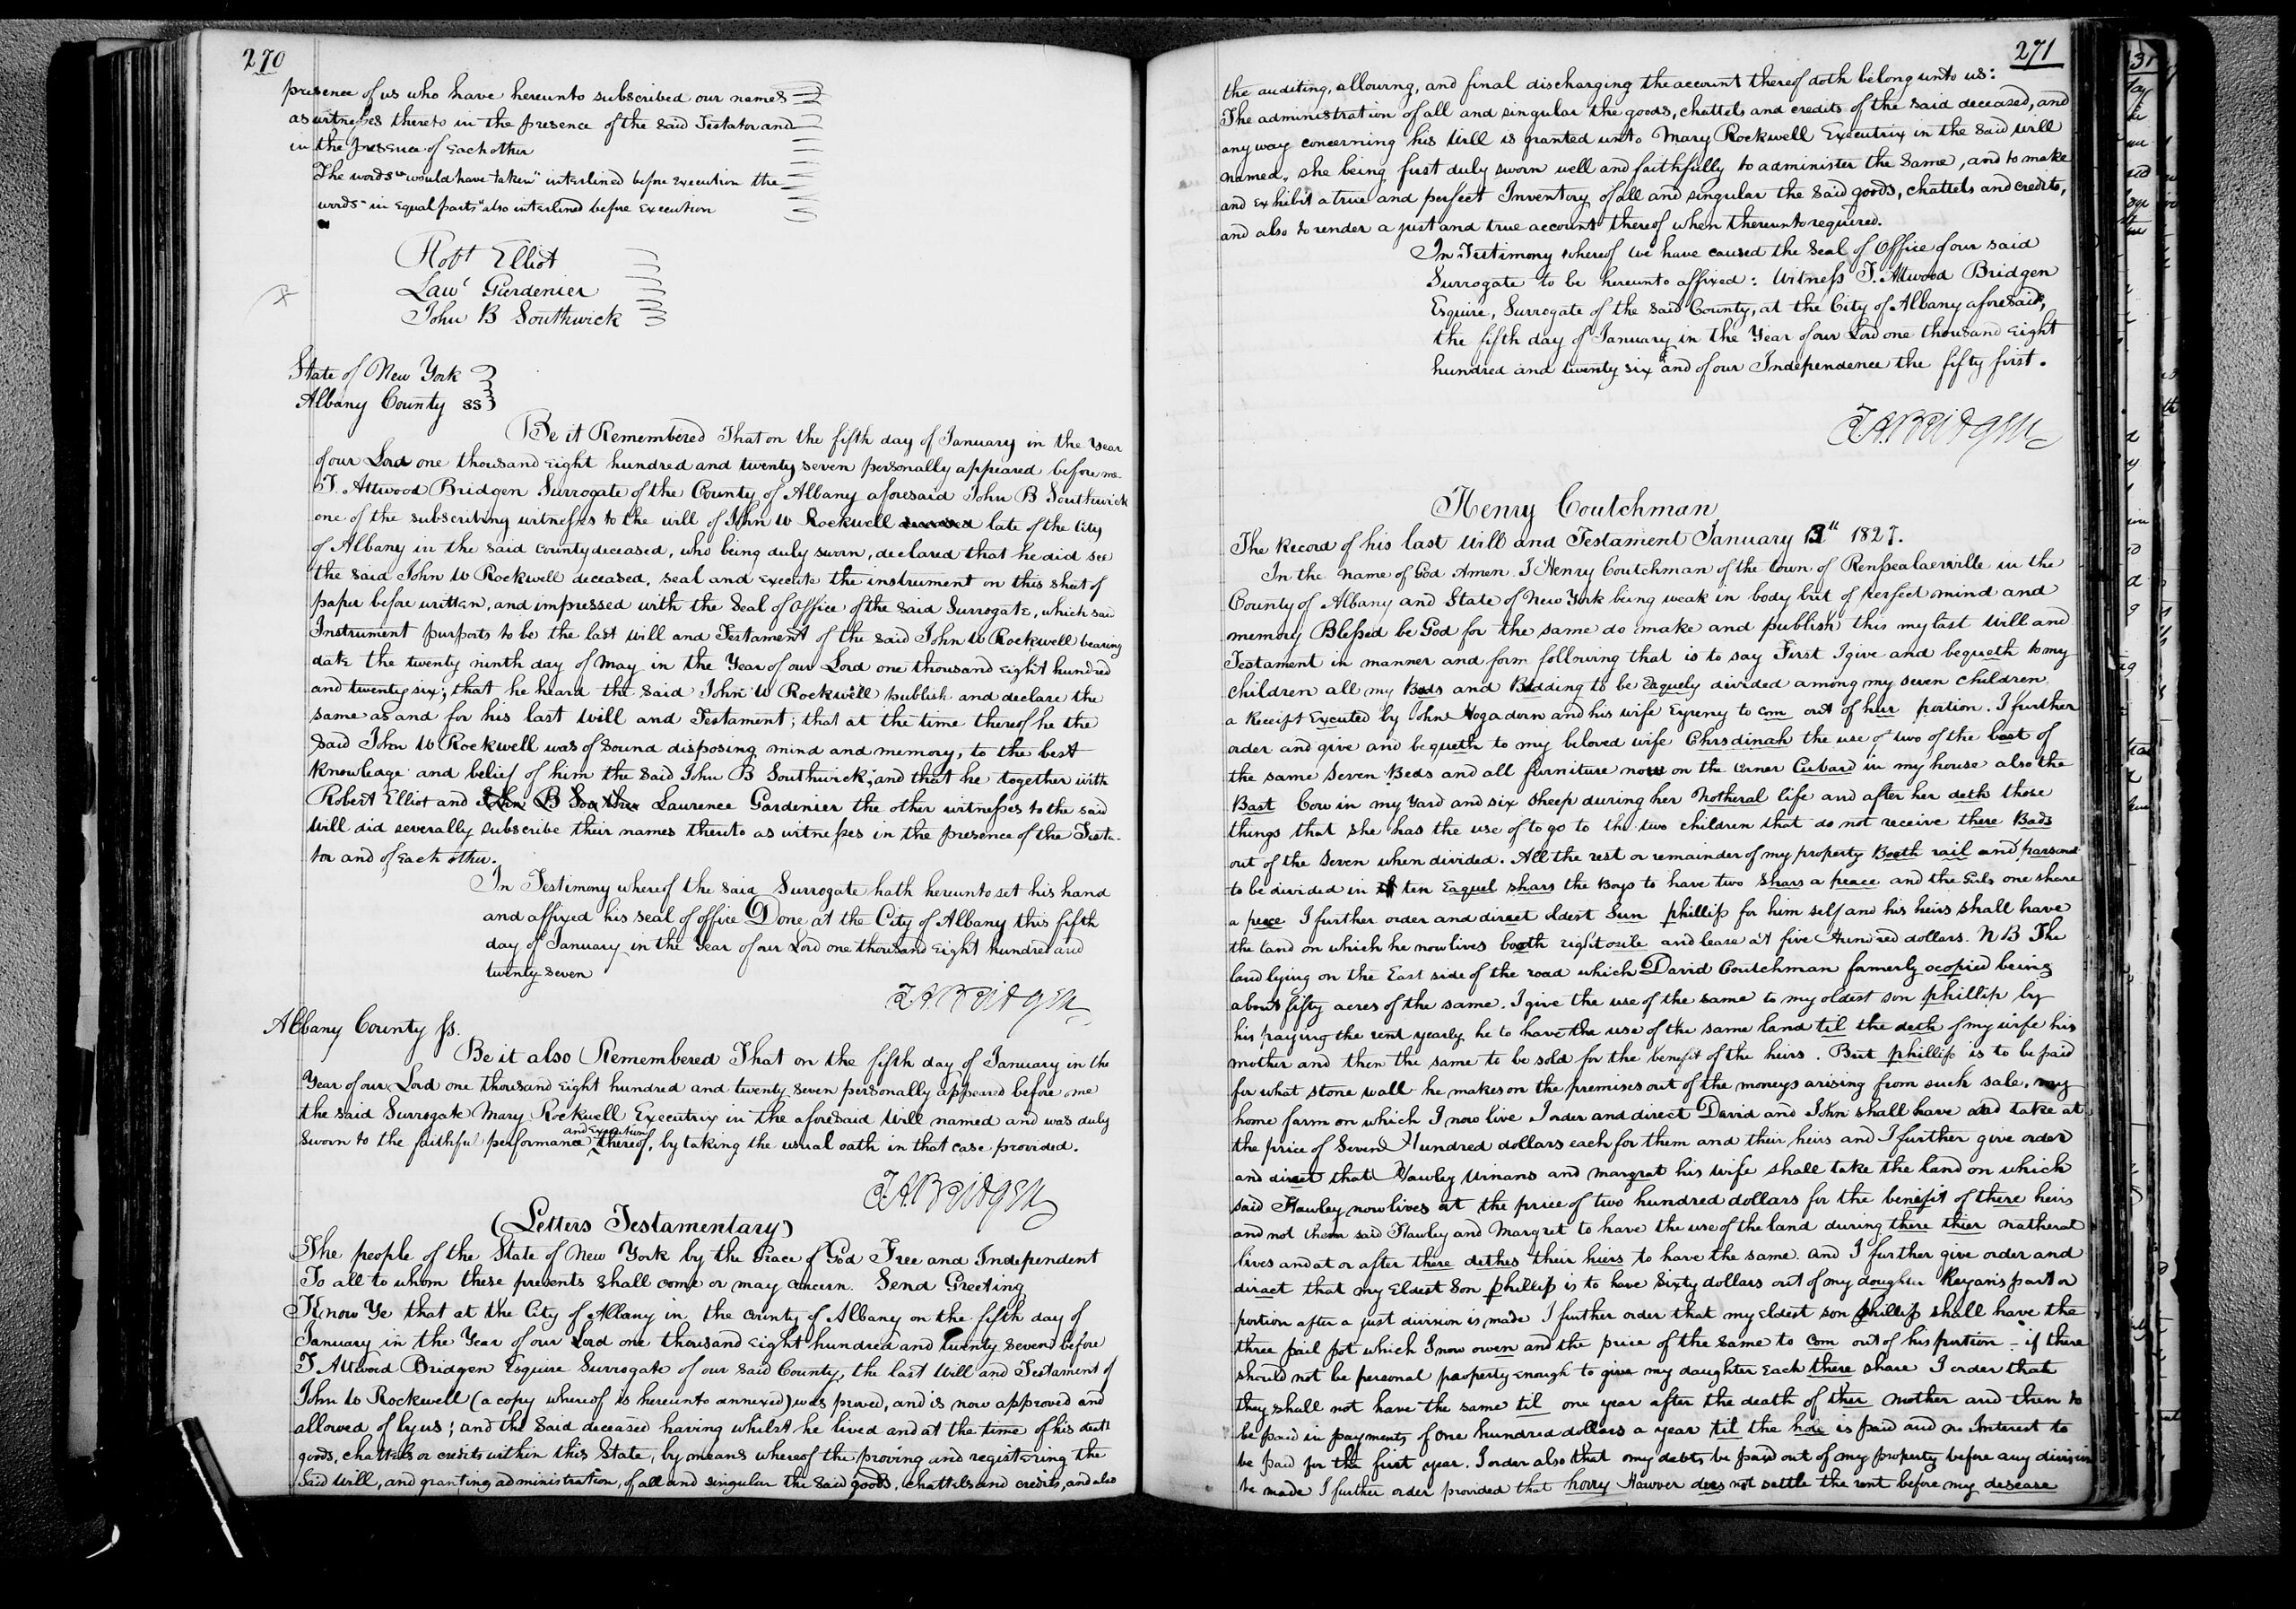 270
presence of us who have hereunto subscribed our names
as witnesses thereto in the presence of the said Testator and
in the presence of Each other
The words "would have taken" interlined before Execution the
words "in Equal parts" also interlined before Execution
Robt Elliot
Lawe Gardenier
John B Southwick
State of New York
Albany County ss
Be it Remembered That on the fifth day of January in the Year
of our Lord one thousand Eight hundred and twenty seven personally appeared before me
T. Attwood Bridgen Surrogate of the County of Albany aforesaid John B Southwick
one of the subscribing witnesses to the will of John W Rockwell late of the City
of Albany in the said County deceased, who being duly sworn, declared that he did see
the said John W Rockwell deceased, seal and Execute the instrument on this sheet of
paper before written, and impressed with the Seal of Office of the said Surrogate, which said
Instrument purports to be the last will and Testament of the said John W Rockwell bearing
date the twenty ninth day of May in the Year of our Lord one thousand Eight hundred
and twenty six; that he heard the said John W Rockwell publish and declare the
same as and for his last will and Testament; that at the time thereof he the
said John W Rockwell was of sound disposing mind and memory, to the best
knowledge and belief of him the said John B Southwick, and that he together with
Robert Elliot and John B Laurence Gardenier the other witnesses to the said
Will did severally subscribe their names thereto as witnesses in the presence of the Testa-
tor and of Each other.
In Testimony whereof the said Surrogate hath hereunto set his hand
and affixed his seal of office Done at the City of Albany this fifth
day of January in the Year of our Lord one thousand Eight hundred and
twenty seven
T A Bridgen
Albany County ss.
Be it also Remembered That on the fifth day of January in the
Year of our Lord one thousand Eight hundred and twenty seven personally appeared before me
the said Surrogate Mary Rockwell Executrix in the aforesaid Will named and was duly
sworn to the faithful performance and Execution thereof, by taking the usual oath in that case provided.
T A Bridgen
(Letters Testamentary)
The people of the State of New York by the Grace of God Free and Independent
To all to whom these presents shall come or may concern Send Greeting
Know Ye that at the City of Albany in the County of Albany on the fifth day of
January in the Year of our Lord one thousand Eight hundred and twenty seven before
T. Attwood Bridgen Esquire Surrogate of our said County, the last Will and Testament of
John W Rockwell (a copy whereof is hereunto annexed) was proved, and is now approved and
allowed of by us; and the said deceased having whilst he lived and at the time of his death
goods, chattels or credits within this State, by means whereof the proving and registering the
said Will, and granting administration, of all and singular the said goods, chattels and credits, and also
271
the auditing, allowing, and final discharging the account thereof doth belong unto us:
The administration of all and singular the goods, chattels and credits of the said deceased, and
any way concerning his Will is granted unto Mary Rockwell Executrix in the said Will
named, she being first duly sworn well and faithfully to administer the same, and to make
and Exhibit a true and perfect Inventory of all and singular the said goods, chattels and credits,
and also to render a just and true account thereof when thereunto required.
In Testimony whereof we have caused the Seal of Office of our said
Surrogate to be hereunto affixed: Witness T. Attwood Bridgen
Esquire, Surrogate of the said County, at the City of Albany aforesaid,
the fifth day of January in the Year of our Lord one thousand Eight
hundred and twenty six and of our Independence the fifty first.
T A Bridgen
Henry Coutchman
The Record of his last Will and Testament January 13th 1827.
In the name of God Amen. I Henry Coutchman of the town of Rensealaerville in the
County of Albany and State of New York being weak in body but of perfect mind and
memory Blessed be God for the same do make and publish this my last Will and
Testament in manner and form following that is to say First I give and bequeth to my
children all my Bads and Badding to be Eaquely divided among my seven children
a Receipt Excuted by John Hogadorn and his wife Eyreny to com out of hur portion. I further
order and give and bequeth to my beloved wife Chrsdinah the use of two of the bast of
the same Seven Beds and all furniture now on the corner Cubard in my house also the
Bast Cow in my Yard and six sheep during her Notheral life and after her deth those
things that she has the use of to go to the two children that do not receive there Bads
out of the Seven when divided. All the rest or remainder of my property Booth rail and parsonal
to be divided in ten Eaquel shars the Boys to have two shars a peace and the Girls one share
a peace I further order and direct oldest Sun phillip for him self and his heirs shall have
the land on which he now lives booth right and lease at five Hundred dollars. N B The
land lying on the East side of the road which David Coutchman formerly ocopied being
about fifty acres of the same. I give the use of the same to my oldest son phillip by
his paying the rent yearly he to have the use of the same land til the deth of my wife his
mother and then the same to be sold for the benefit of the heirs. But phillip is to be paid
for what stone wall he makes on the premises out of the moneys arising from such sale. my
home farm on which I now live I order and direct David and John shall have and take at
the price of Seven Hundred dollars each for them and their heirs and I further give order
and direct that Hawley Winans and margrat his wife shall take the land on which
said Hawley now lives at the price of two hundred dollars for the benifit of there heirs
and not them said Hawley and Margret to have the use of the land during there thier natheral
lives and at or after there dethes their hiers to have the same. and I further give order and
diract that my Eldest Son phillip is to have Sixty dollars out of my doughter Reyan's part or
portion after a just division is made I further order that my Eldest son phillip shall have the
three pail pot which I now owen and the price of the same to com out of his portion - if there
should not be personal property Enough to give my daughter Each there share I order that
they shall not have the same til one year after the death of ther mother and then to
be paid in payments of one hundred dollars a year til the hole is paid and no Interest to
be paid for the first year. I order also that my debts be paid out of my property before any division
be made I further order provided that horry Hawver does not settle the rent before my desease